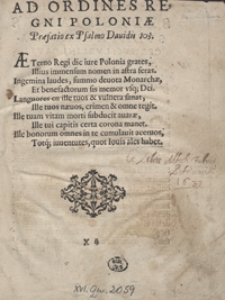 AD ORDINES RE
GNI POLONIÆ
Præfatio ex Psalmo Dauidis 103.
ÆTerno Regi dic iure Polonia grates,
Illius immensum nomen in astra feras.
Ingemina laudes, summo deuota Monarchæ,
Et benefactorum sis memor vsq; Dei.
Languores en ille tuos & vulnera sanat,
Ille tuos næuos, crimen & omne tegit.
Ille tuam vitam morti subducit auaræ,
Ille tui capitis certa corona manet.
Ille bonorum omnes in te cumulauit aceruos,
Totq; iuuentutes, quot Iouis ales habet.
XVI. Qu. 2059